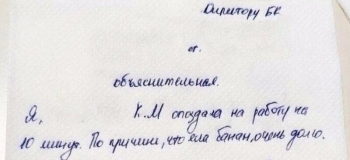 Директору БК
от.
объяснительная.
Я, К.М опоздала на работу на
10 минут. По причине, что ела банан, очень долго.